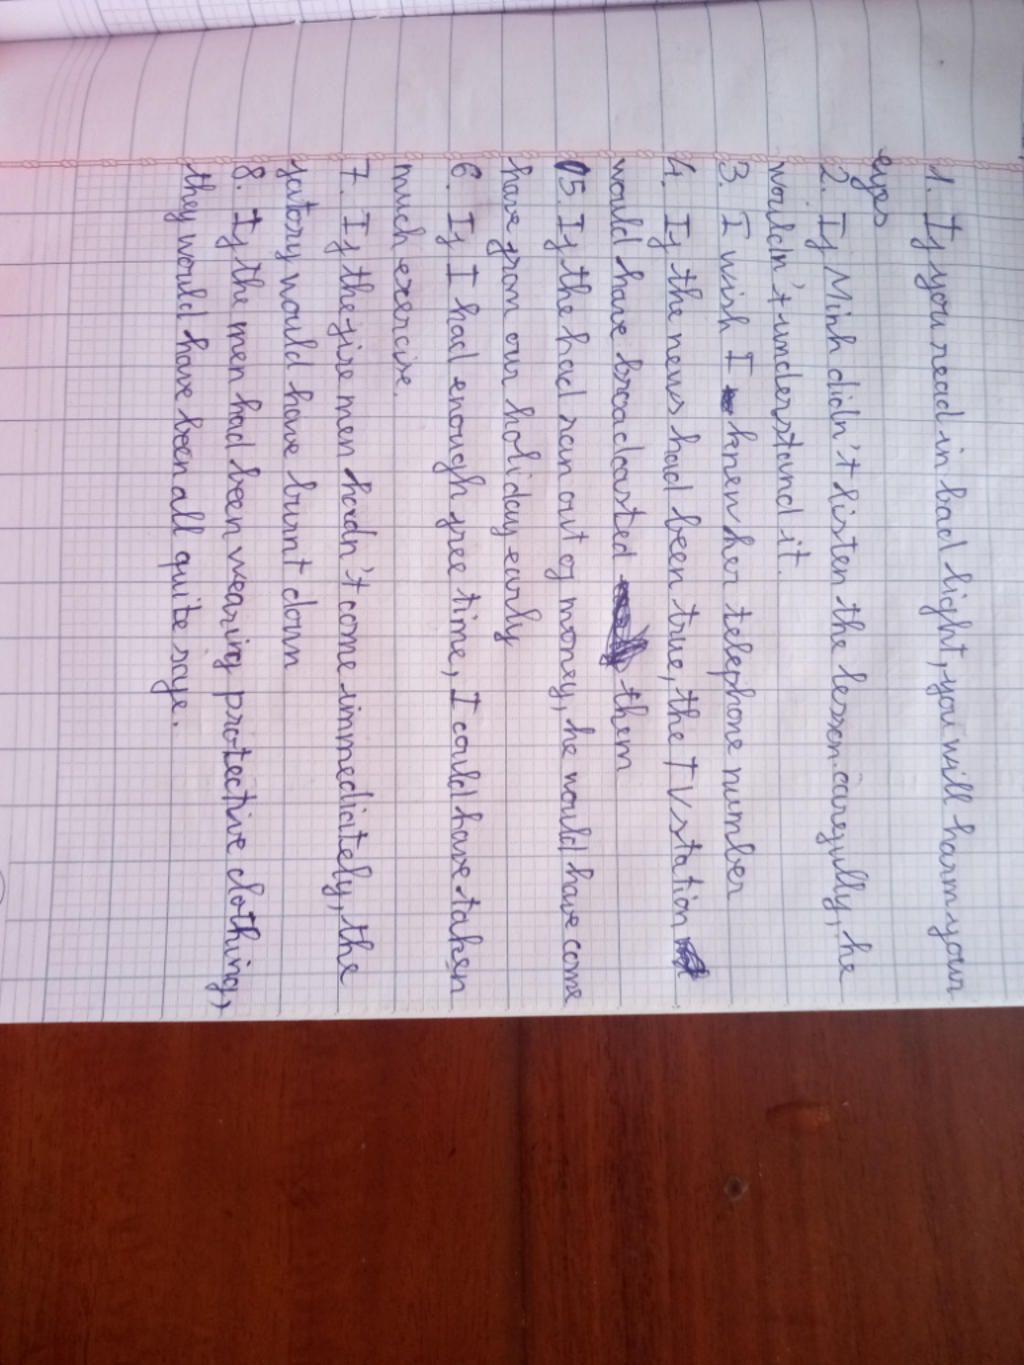 1. If you read in bad light, you will harm your
eyes
2. If Minh didn't listen the lesson carefully, he
wouldn't understand it.
3. I wish I knew her telephone number
4. If the news had been true, the TV station
would have broadcasted them
5. If the had ran out of money, he would have come
have from our holiday early
6. If I had enough free time, I could have taken
much exercise.
7. If the fire men hadn't come immediately, the
fatory would have burnt down
8. If the men had been wearing protective clothing,
they would have been all quite safe.